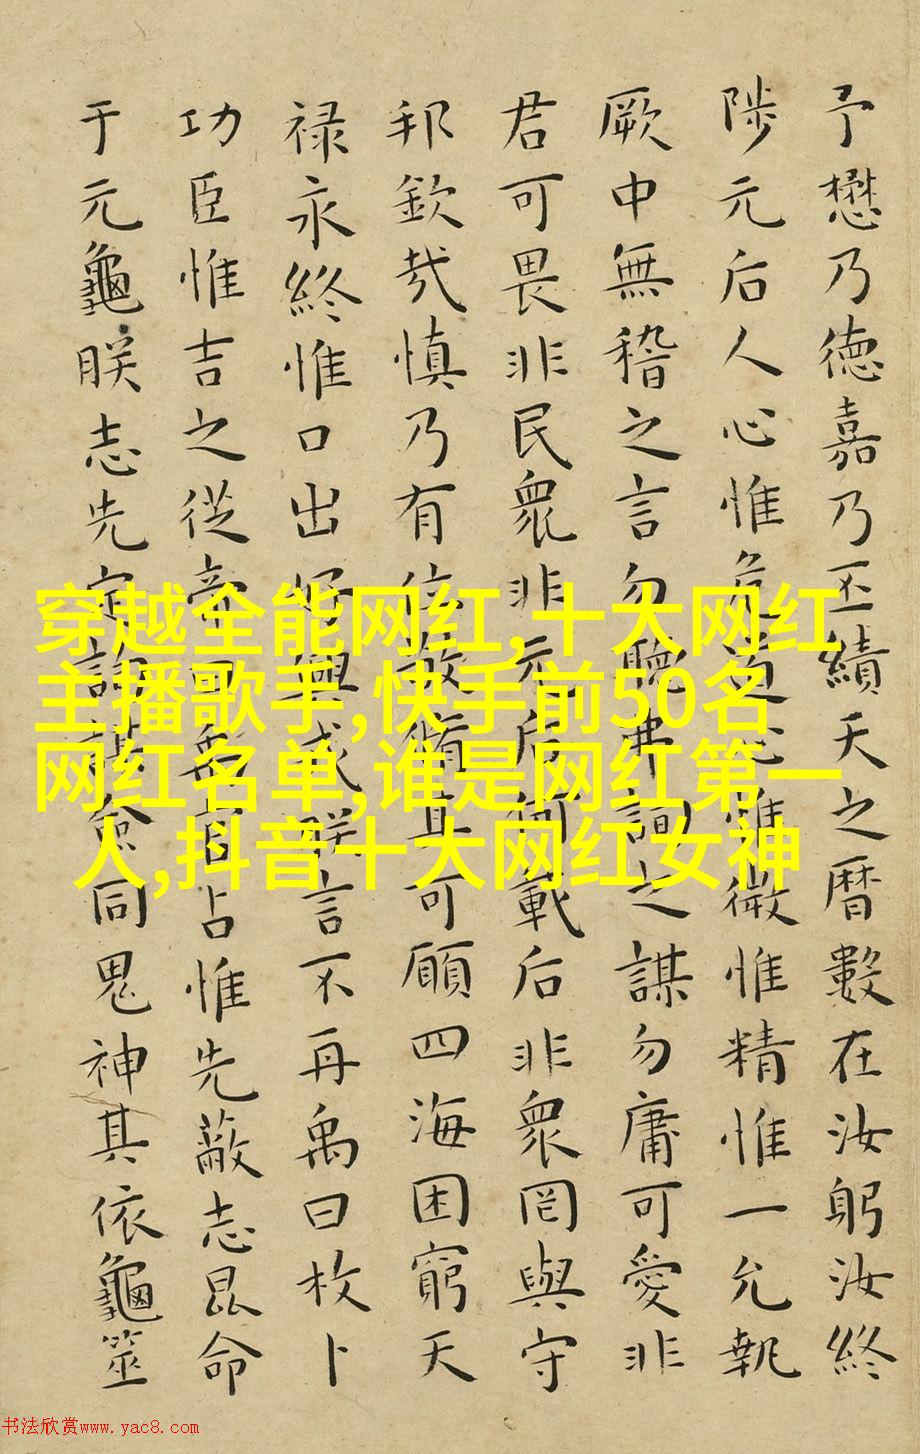 予懋乃德嘉乃丕績天之曆數在汝躬汝終
陟元后人心惟危道心惟微惟精惟一允執
厥中無稽之言勿聽弗詢之謀勿庸可愛非
君可畏非民衆非元后何載后非衆罔與守
邦欽哉慎乃有位敬脩其可願四海困窮天
禄永終惟口出好興戎朕言不再禹曰枚卜
功臣惟吉之從帝曰禹官占惟先蔽志昆命
于元龜朕志先定詢謀僉同鬼神其依龜筮
穿越全能网红,十大网红
主播歌手,快手前50名
网红名单,谁是网红第一
人,抖音十大网红女神
书法欣赏www.yac8.com